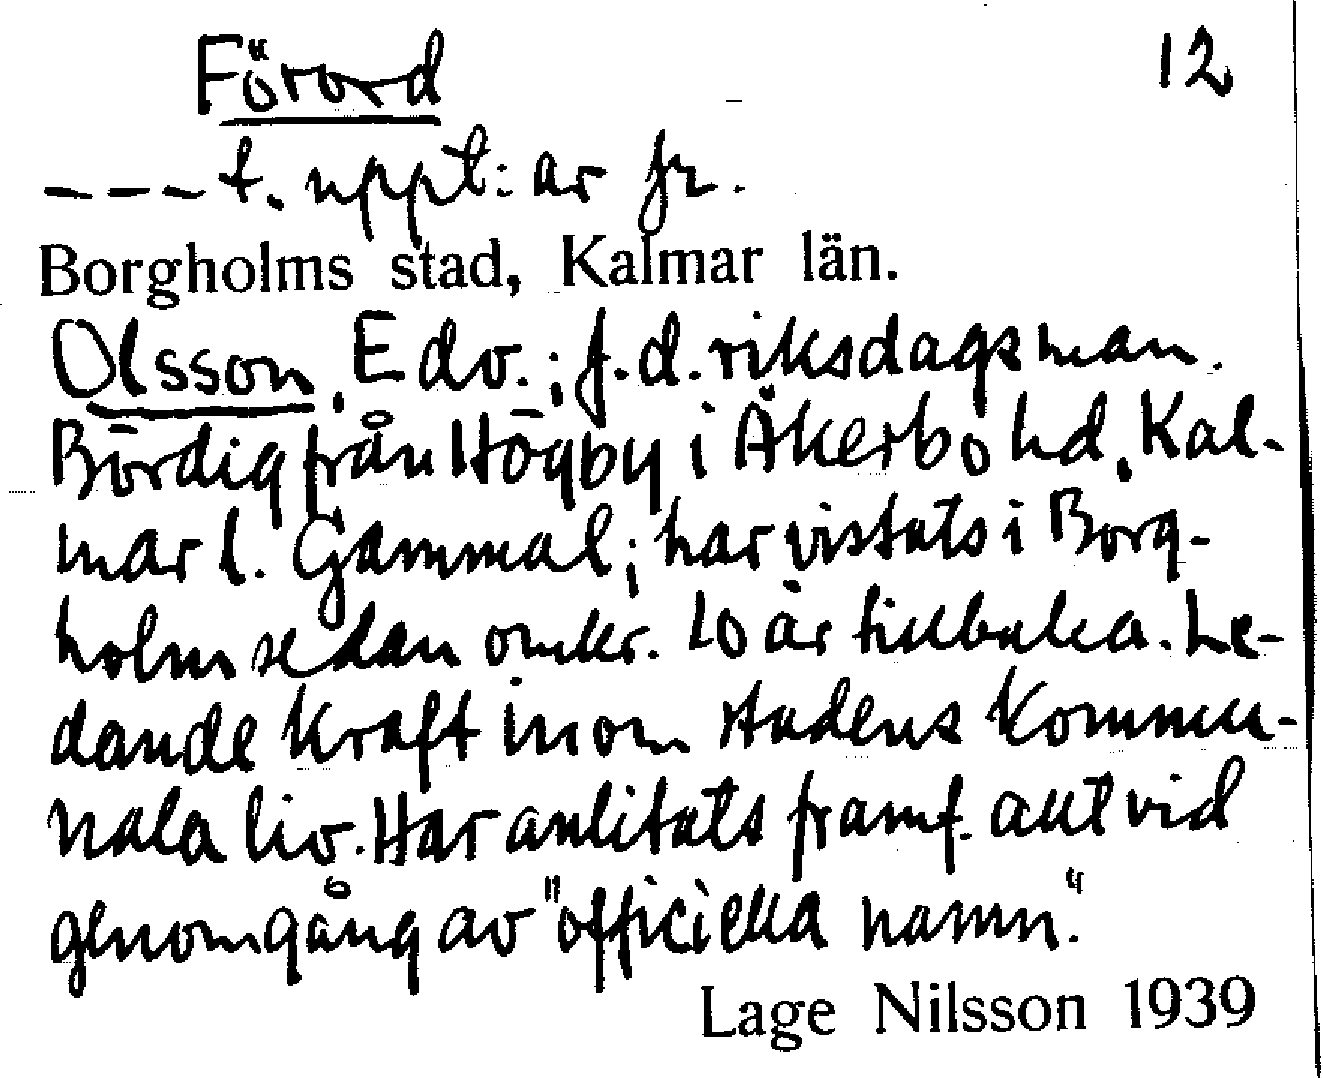 Förord 12
--- t. uppt:ar fr.
Borgholms stad, Kalmar län.
Olsson, Edv.; f.d. riksdagsman.
Bördig från Högby i Åkerbo hd, Kal-
mar l. Gammal; har vistats i Borg-
holm sedan omkr. 10 år tillbaka. Le-
dande kraft inom stadens kommu-
nala liv. Har anlitats framf. allt vid
genomgång av "officiella namn."
Lage Nilsson 1939